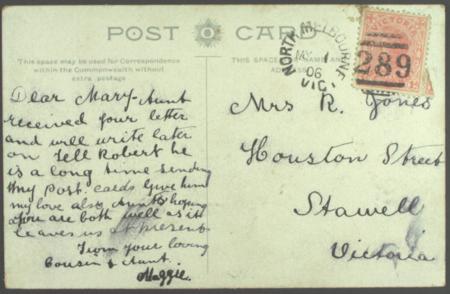 POST CARD
This space may be used for Correspondence
within the Commonwealth without
extra postage
THIS SPACE FOR NAME AND
ADDRESS
NORTH MELBOURNE
MY 1
06
VIC
VICTORIA
289
Dear Mary - Aunt
received your letter
and will write later
on Tell Robert he
is a long time sending
my Post-cards Give him
my love also Aunts hoping
you are both well as it
leaves us at present
From your loving
Cousin & Aunt.
Maggie.
Mrs R. Jones
Houston Street
Stawell
Victoria